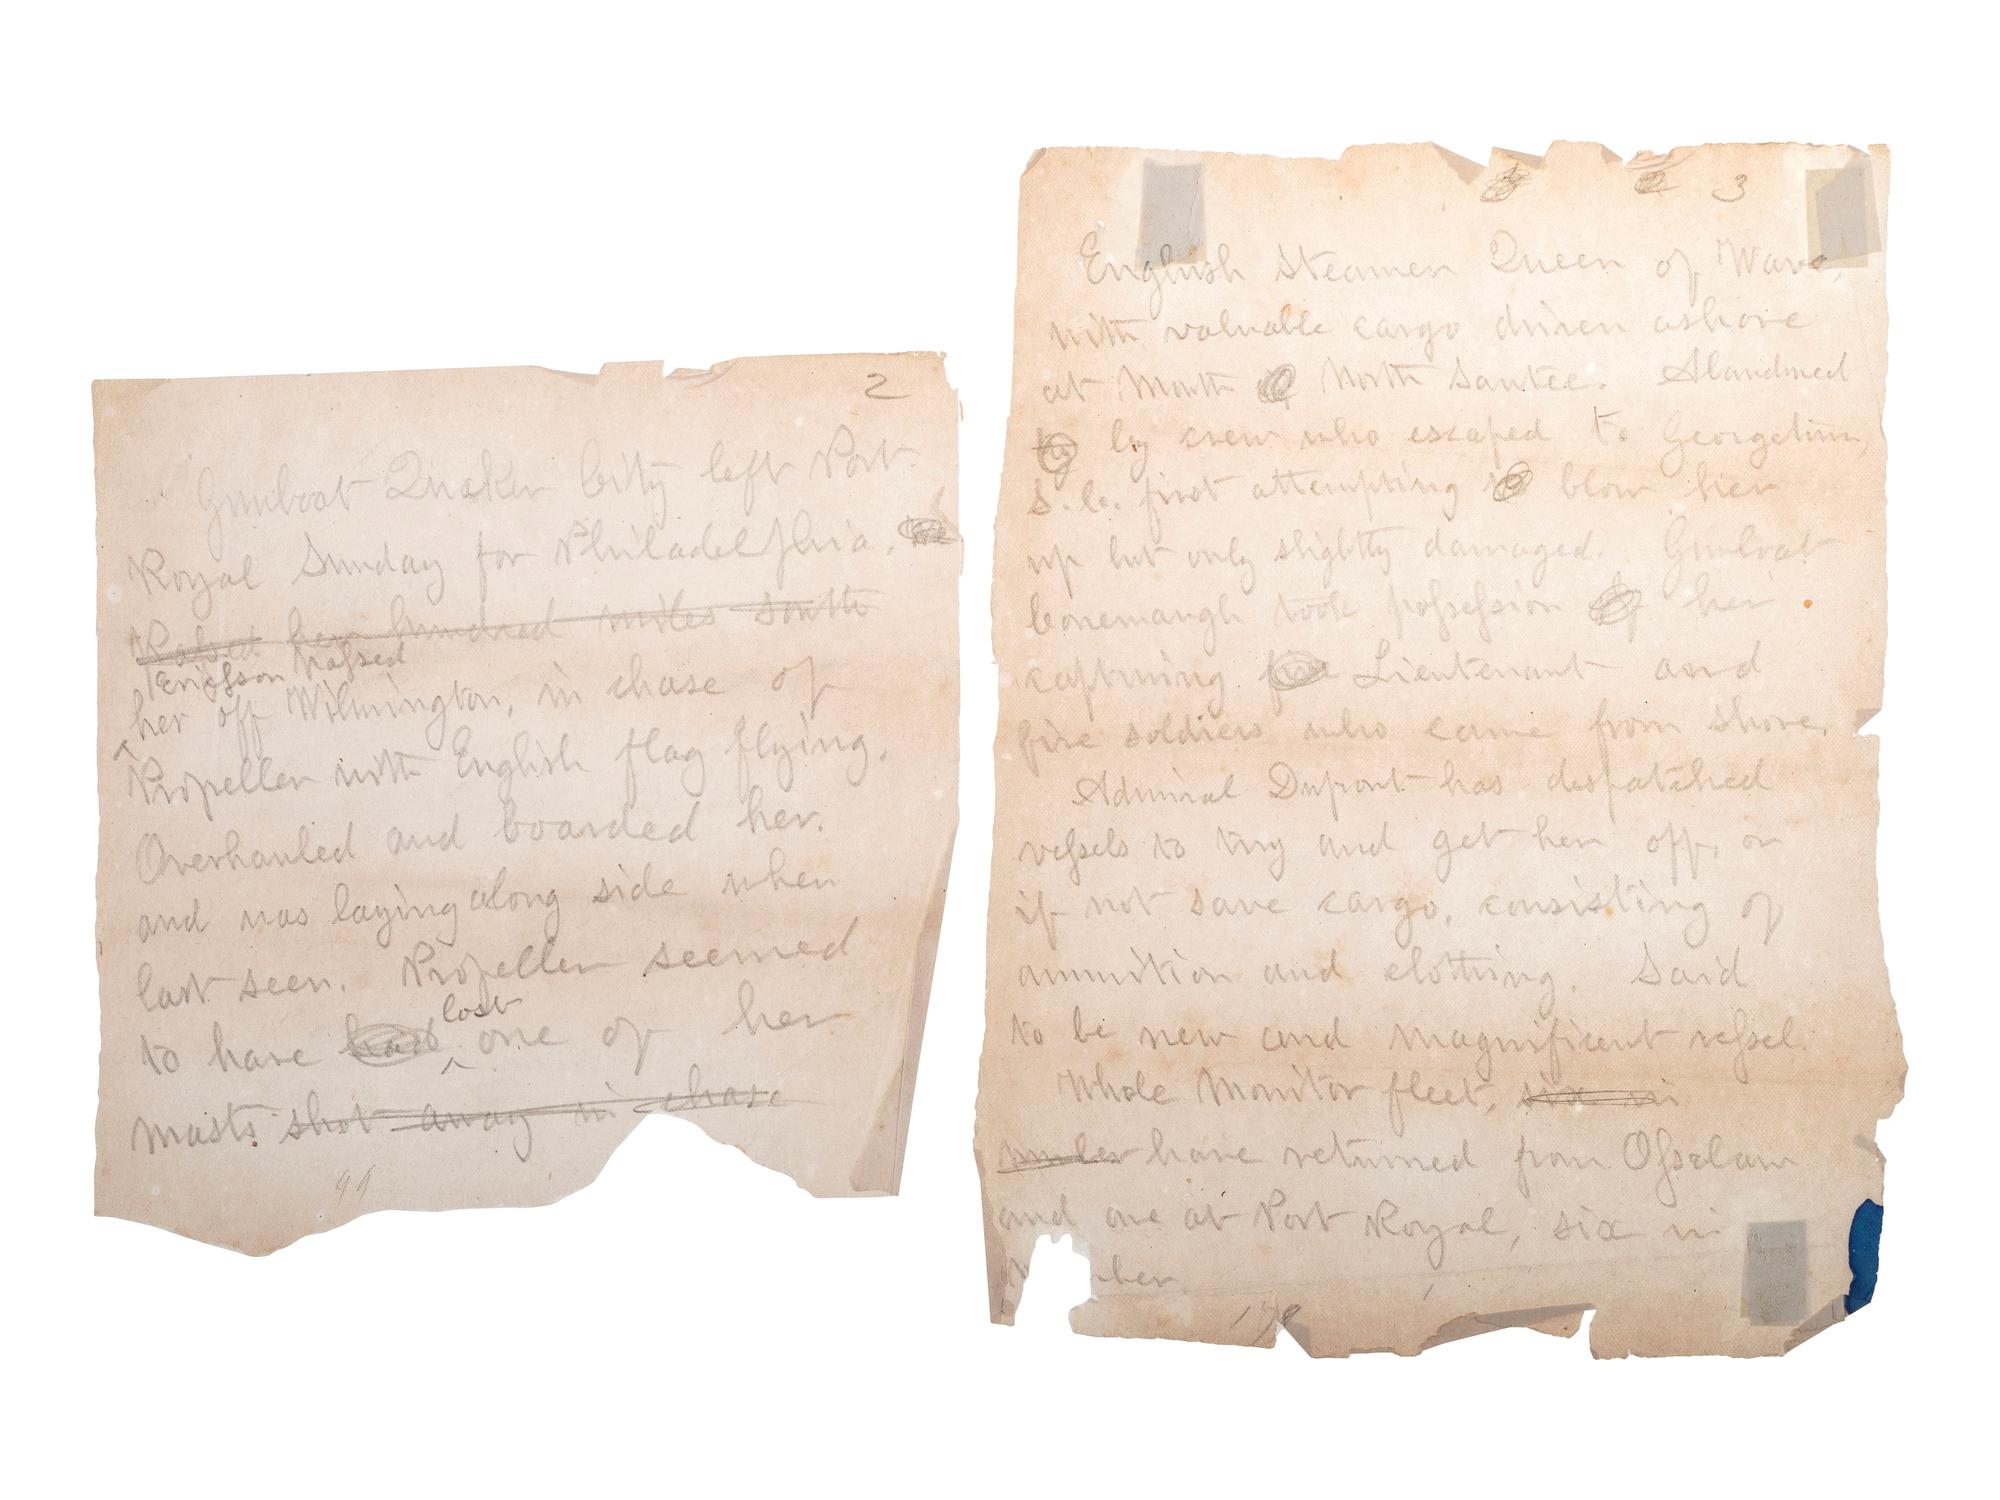 2
Gunboat Quaker City left Port
Royal Sunday for Philadelphia.
Passed her hundred miles south
Ericsson passed
her off Wilmington, in chase of
Propeller with English flag flying.
Overhauled and boarded her.
and was laying along side when
last seen. Propeller seemed
lost
to have had one of her
masts shot away in chase
99
3
English steamer Queen of Wave,
with valuable cargo driven ashore
at Mouth of North Santee. Abandoned
by by crew who escaped to Georgetown,
S.C. first attempting to blow her
up but only slightly damaged. Gunboat
Conemaugh took possession of her
capturing Lieutenant and
five soldiers who came from shore.
Admiral Dupont has despatched
vessels to try and get her off, or
if not save cargo, consisting of
ammunition and clothing. Said
to be new and magnificent vessel.
Whole Monitor fleet, six in
number have returned from Osselaw
and are at Port Royal, six in
number
179